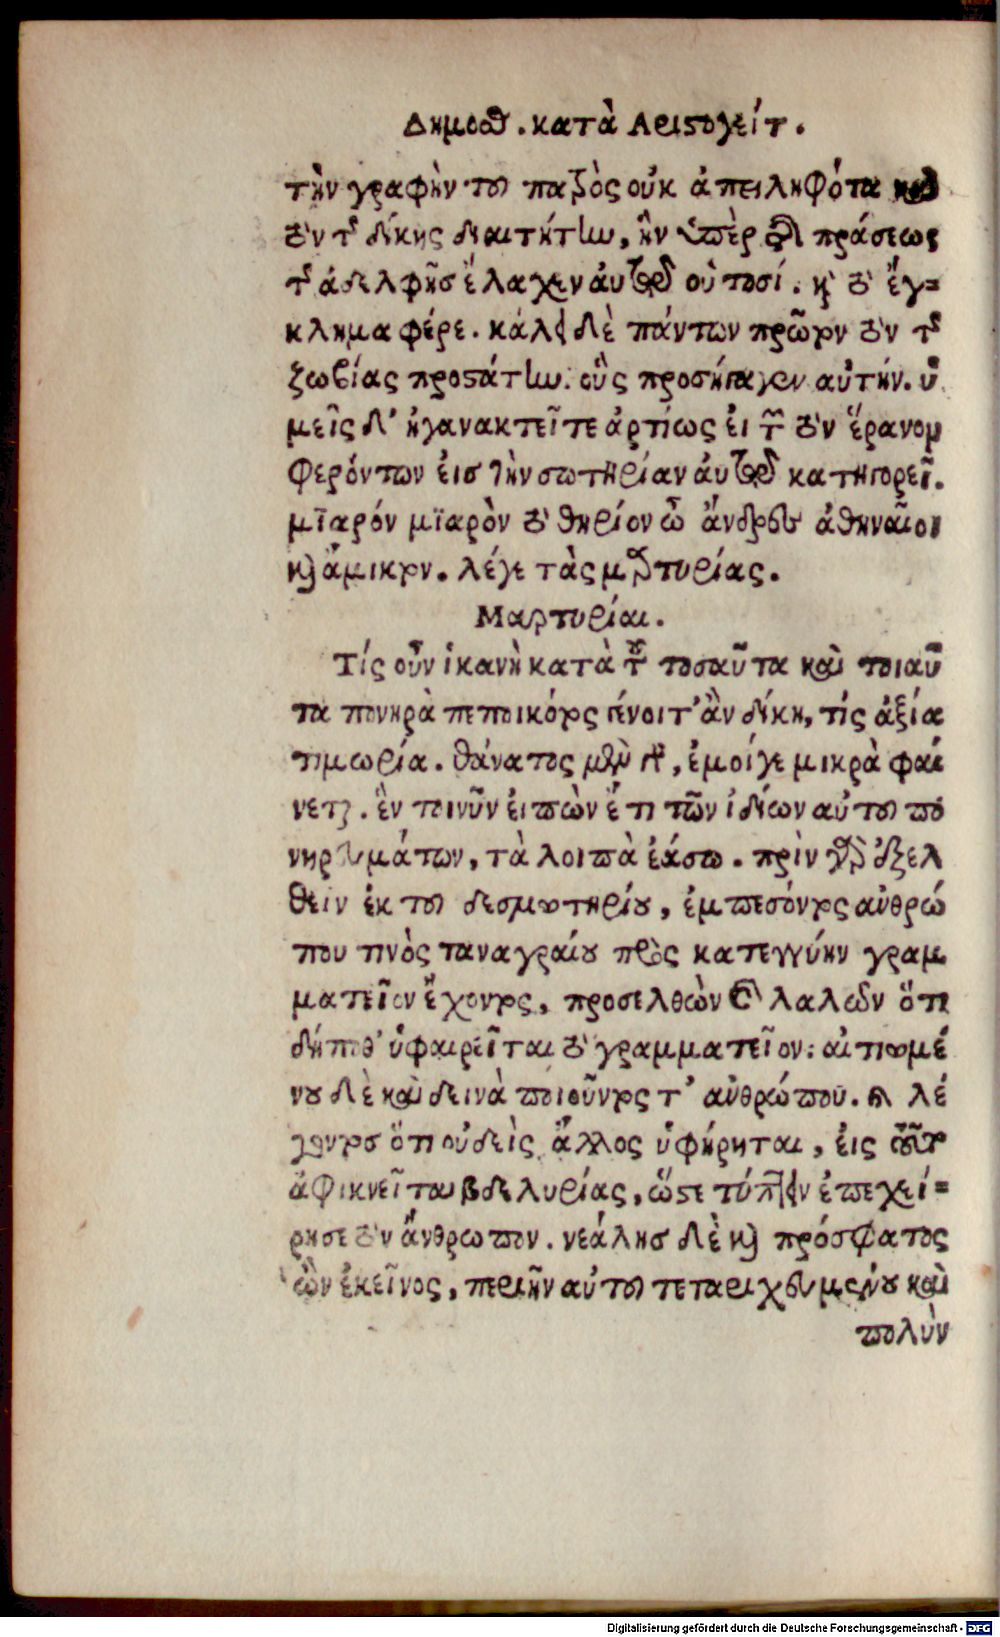 Δημοσθ. κατὰ Αριστογείτ.
τὴν γραφὴν τοῦ πατρὸς οὐκ ἀπειληφότα καὶ
τὸν τῆς δίκης διαιτητὴν, ἣν ὑπὲρ τῆς πράσεως
τῆς ἀδελφῆς ἔλαχεν αὐτῷ οὑτοσί. καὶ τὸ ἔγ=
κλημα φέρε. κάλει δὲ πάντων πρῶτον τὸν τῆς
ζωβίας προστάτην. οὓς προσήπαγεν αὐτήν. ὑ
μεῖς δ' ἠγανακτεῖτε ἀρτίως εἰ τῶν τὸν ἔρανον
φερόντων εἰς τὴν σωτηρίαν αὐτῷ κατηγορεῖ.
μϊαρόν μϊαρὸν τὸ θηρίον ὦ ἄνδρες ἀθηναῖοι
καὶ ἄμικτον. λέγε τὰς μαρτυρίας.
Μαρτυρίαι.
Τίς οὖν ἱκανὴ κατὰ τοῦ τοσαῦτα καὶ τοιαῦ
τα πονηρὰ πεποιηκότος γένοιτ' ἂν δίκη, τίς ἀξία
τιμωρία. θάνατος μὲν γὰρ, ἐμοίγε μικρὰ φαί
νεται. ἓν τοινῦν εἰπὼν ἔτι τῶν ἰδίων αὐτοῦ πο
νηρευμάτων, τὰ λοιπὰ ἐάσω. πρὶν γὰρ ἐξελ
θεῖν ἐκ τοῦ δεσμωτηρίου, ἐμπεσόντος ἀνθρώ
που τινὸς ταναγραίου πρὸς κατεγγύην γραμ
ματεῖον ἔχοντος, προσελθὼν καὶ λαλῶν ὅτι
δήποθ' ὑφαιρεῖται τὸ γραμματεῖον: αἰτιωμέ
νου δὲ καὶ δεινὰ ποιοῦντος τ' ἀνθρώπου. καὶ λέ
γοντος ὅτι οὐδεὶς ἄλλος ὑφήρηται, εἰς τοῦτο
ἀφικνεῖται βδελυρίας, ὥστε τύπτειν ἐπεχεί=
ρησε τὸν ἄνθρωπον. νεάλης δὲ καὶ πρόσφατος
ὢν ἐκεῖνος, περιῆν αὐτοῦ τεταριχευμένου καὶ
πολὺν
Digitalisierung gefördert durch die Deutsche Forschungsgemeinschaft - DFG